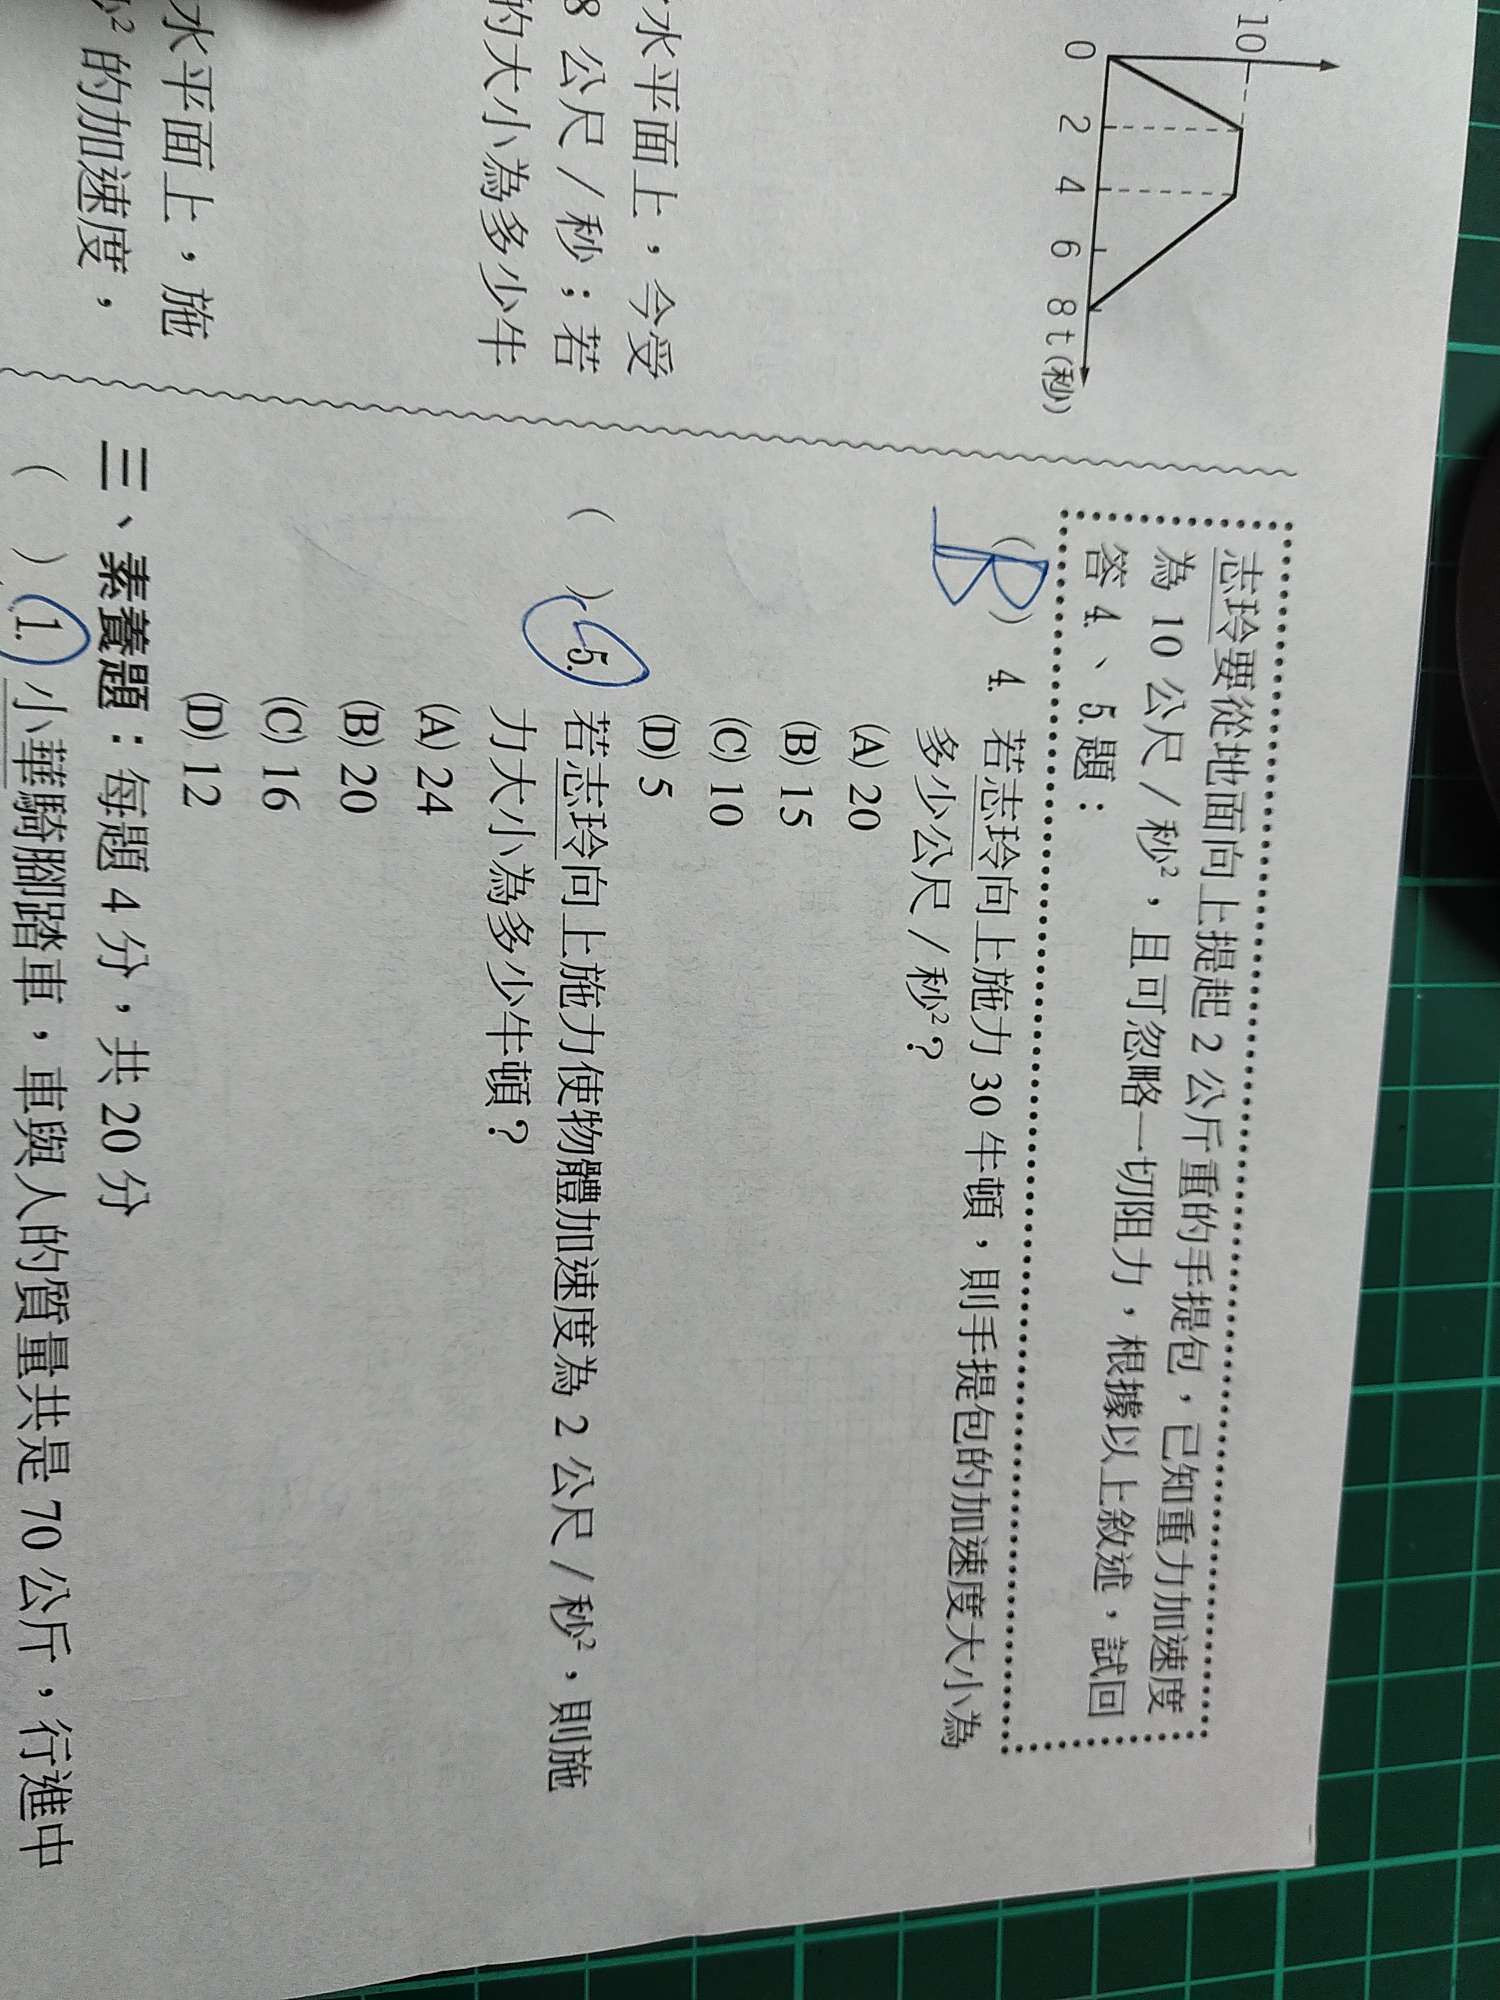 10
0 2 4 6 8 t(秒)
水平面上，今受
8 公尺／秒；若
的大小為多少牛
水平面上，施
² 的加速度，
志玲要從地面向上提起 2 公斤重的手提包，已知重力加速度
為 10 公尺／秒²，且可忽略一切阻力，根據以上敘述，試回
答 4.、5.題：
(B) 4. 若志玲向上施力 30 牛頓，則手提包的加速度大小為
多少公尺／秒²？
(A) 20
(B) 15
(C) 10
(D) 5
( ) 5. 若志玲向上施力使物體加速度為 2 公尺／秒²，則施
力大小為多少牛頓？
(A) 24
(B) 20
(C) 16
(D) 12
三、素養題：每題 4 分，共 20 分
( ) 1. 小華騎腳踏車，車與人的質量共是 70 公斤，行進中